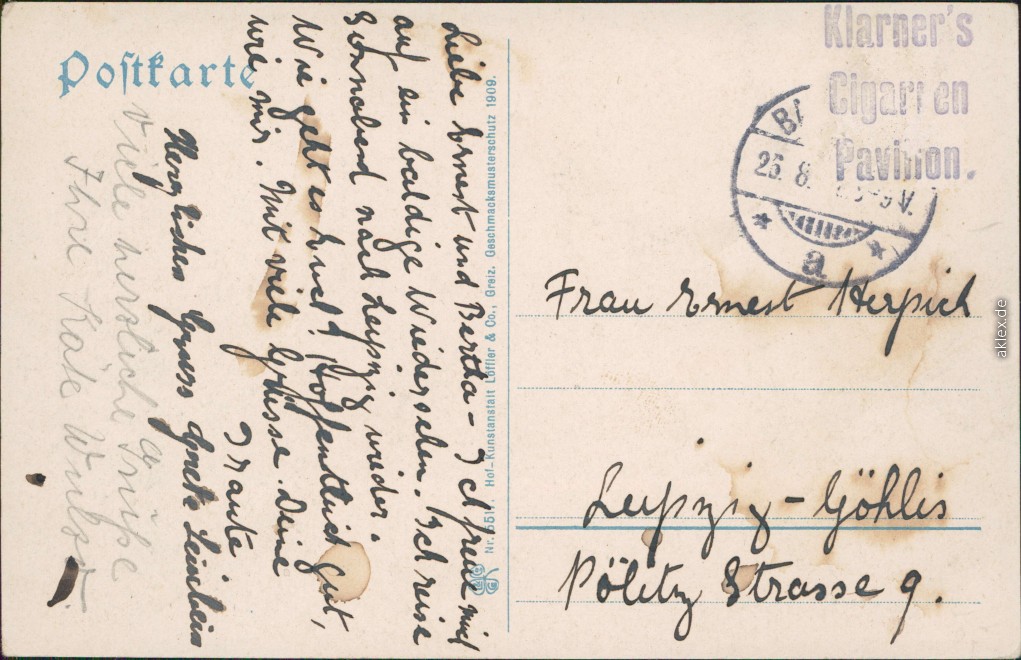 Postkarte
Liebe Ernest und Bertha – Ich freue mich
auf ein baldige Wiedersehen. Ich reise
Sonnabend nach Leipzig wieder.
Wie geht es Euch? Hoffendlich gut,
wie mir. Mit viele Grüsse Deine
Traute
Herzlichen Gruss Grete
Viele herzliche Grüße
Ihre Käte
Nr. 5511. Hof-Kunstanstalt Löffler & Co., Greiz. Geschmacksmusterschutz 1909.
Klarner's
Cigarren
Pavillon.
25. 8.
V.
a
Frau Ernest Herpich
Leipzig – Göhlis
Pölitz Strasse 9.
aklex.de